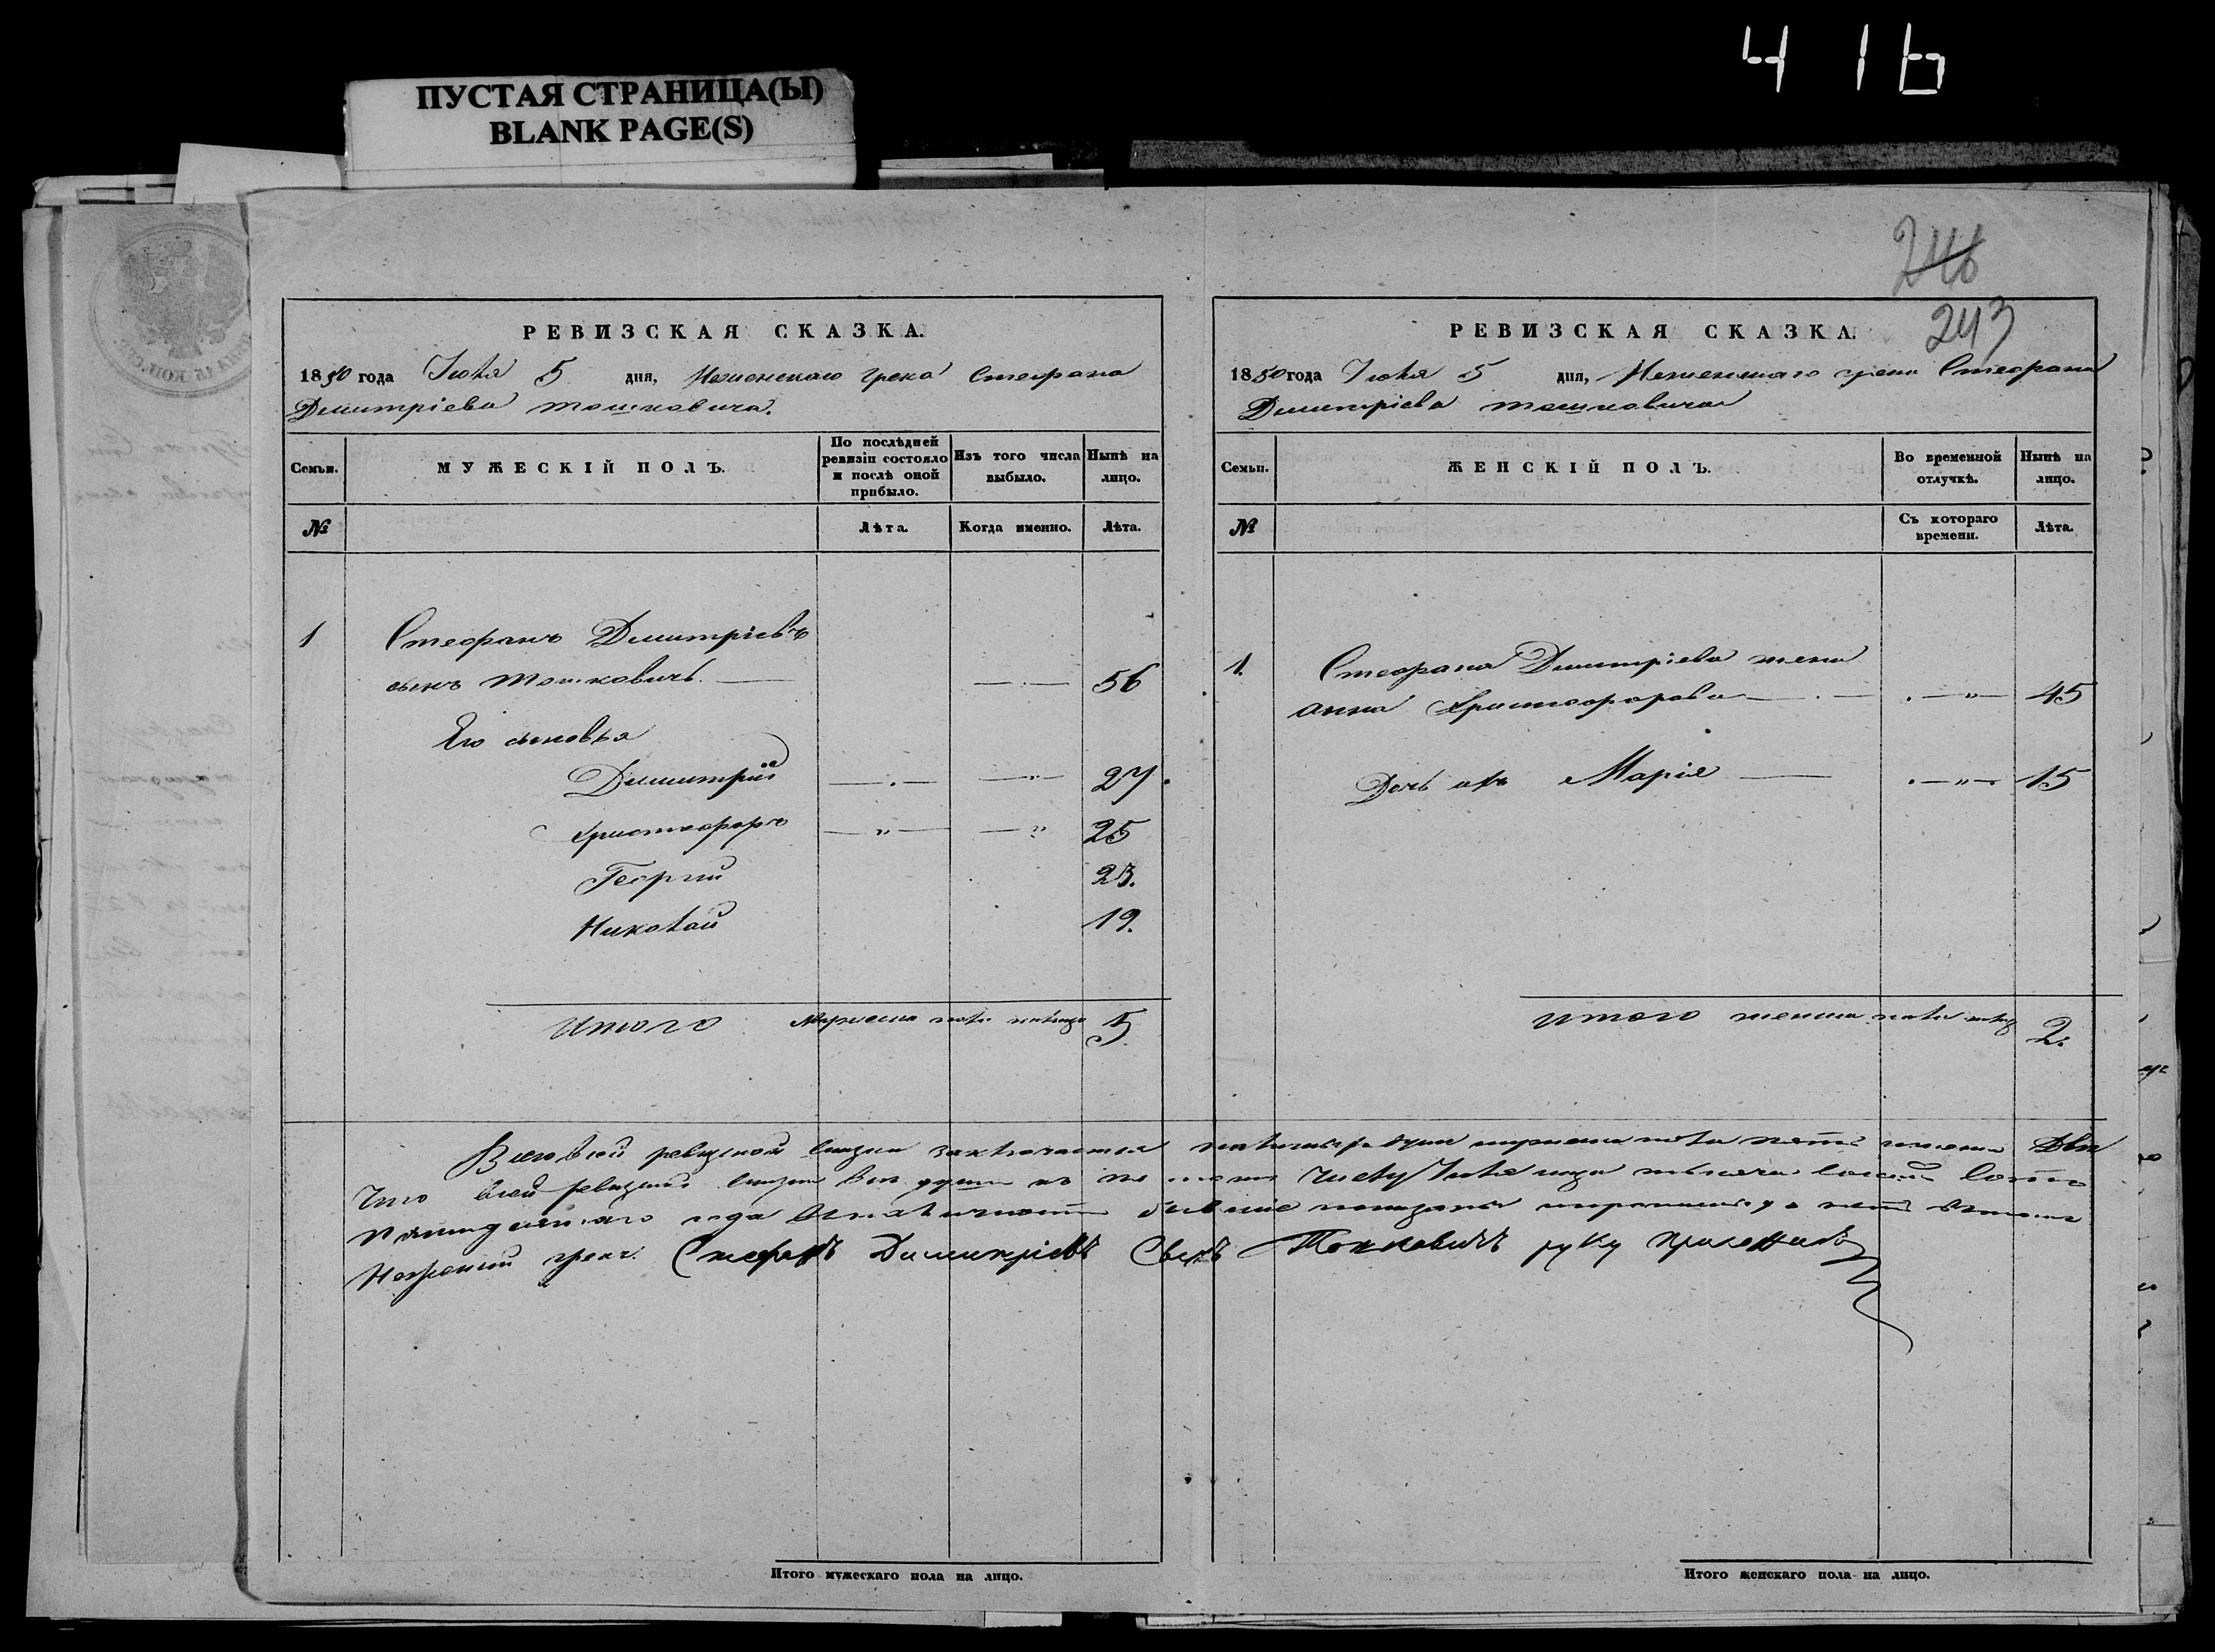 416
ПУСТАЯ СТРАНИЦА(Ы)
BLANK PAGE(S)
246
243
РЕВИЗСКАЯ СКАЗКА.
1850 года Іюля 5 дня, Неженскаго грека Стефана
Димитріева Тошковича.
Семьи.
МУЖЕСКІЙ ПОЛЪ.
По послѣдней ревизіи состояло и послѣ оной прибыло.
Изъ того числа выбыло.
Нынѣ на лицо.
№
Лѣта.
Когда именно.
Лѣта.
1 Стефанъ Димитріевъ
сынъ Тошковичъ. 56
Его сыновья
Димитрій 27.
Христофоръ 25
Георгий 23.
Николай 19.
Итого мужеска пола налицо 5
РЕВИЗСКАЯ СКАЗКА.
1850 года Іюля 5 дня, Неженскаго грека Стефана
Димитріева Тошковича
Семьи.
ЖЕНСКІЙ ПОЛЪ.
Во временной отлучкѣ.
Нынѣ на лицо.
№
Съ котораго времени.
Лѣта.
1. Стефана Димитріева жена
Анна Христофорова 45
Дочь ихъ Марія 15
Итого женска пола налицо 2.
Всего въ сей ревизской сказки заключается наличныхъ душъ мужеска пола пять женска Двѣ
Что въ сей ревизской сказки все души по число Іюля тысяча восемь сотъ
пятидесятаго года
Неженский грекъ Стефанъ Димитріевъ Сынъ Тошковичъ руку приложилъ
Итого мужескаго пола на лицо.
Итого женскаго пола на лицо.